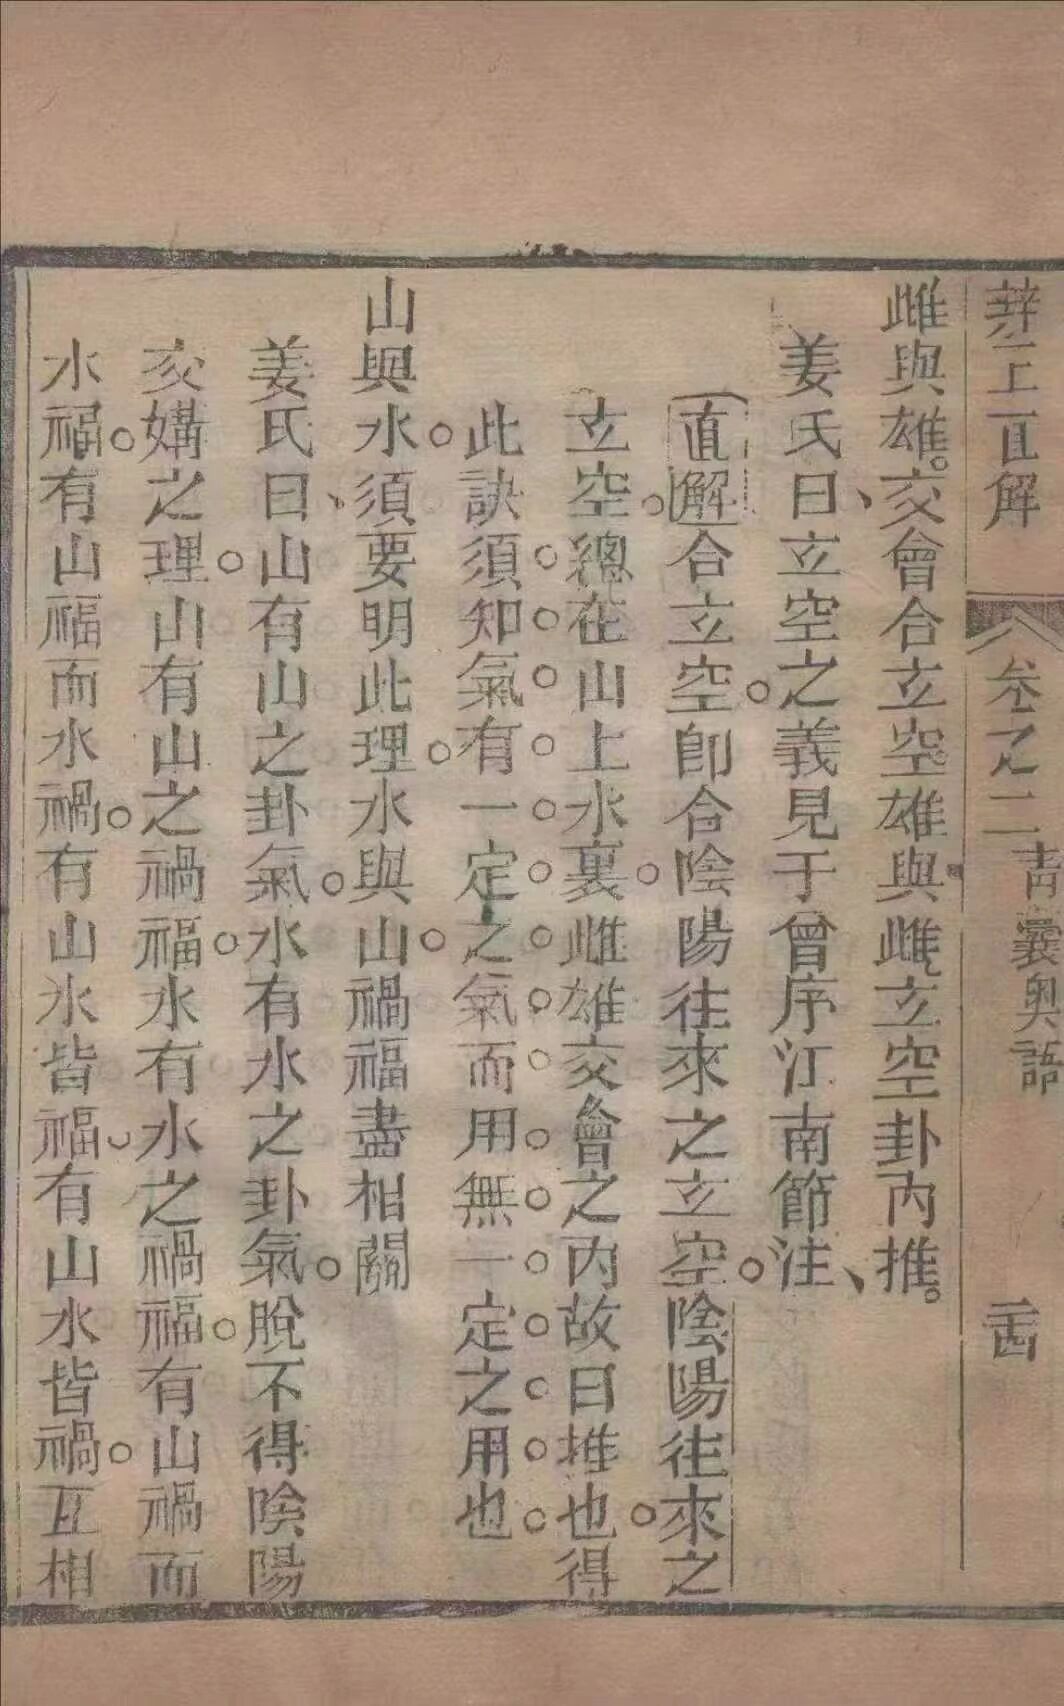 辨正直解 卷之二 青囊奧語 二十四
雌與雄。交會合立空雄與雌立空卦內推。
姜氏曰、立空之義見于曾序江南節注、
直解合立空。卽合陰陽往來之立空。陰陽往來之
立空。總在山上水裏。雌雄交會之內故曰推也。得
此訣須知氣有一定之氣而用無一定之用也
山與水。須要明此理。水與山。禍福盡相關
姜氏曰、山有山之卦氣。水有水之卦氣。脫不得陰陽
交媾之理。山有山之禍福。水有水之禍福。有山禍而
水福。有山福而水禍。有山水皆福。有山水皆禍。互相